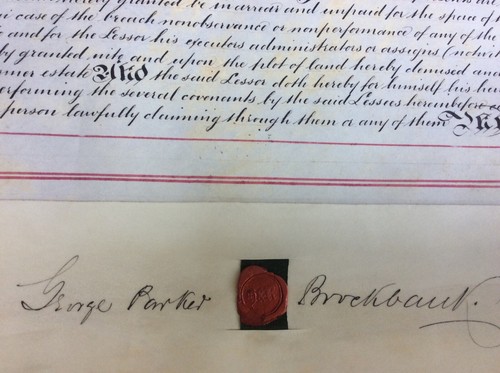 hereby granted be in arrear and unpaid for the space of
in case of the breach nonobservance or nonperformance of any of the
and for the Lessor his executors administrators or assigns (notwi
by granted into and upon the plot of land hereby demised and
former estate And the said Lessor doth hereby for himself his hei
performing the several covenants by the said Lessees hereinbefore
person lawfully claiming through them or any of them
George Parker Brockbank.